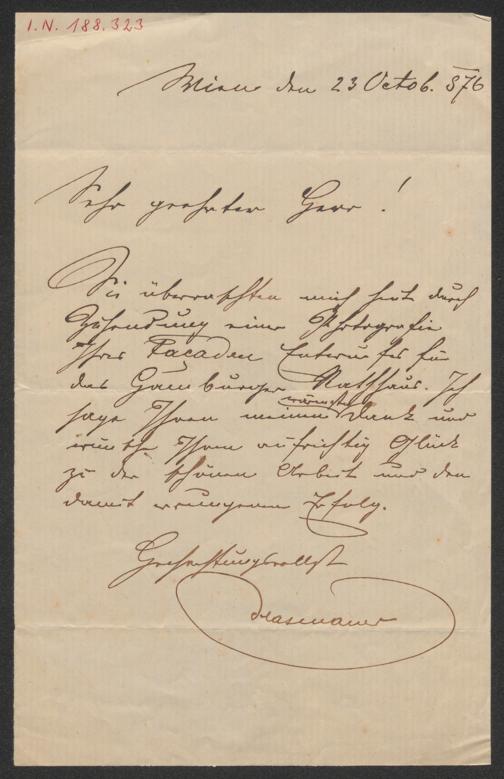 I.N. 188.323
Wien den 23 Octob. 876
Sehr geehrter Herr!
Sie überraschten mich heut durch
Zusendung einer Photografie
Ihres Façaden Entwurfes für
das Hamburger Rathhaus. Ich
wärmsten
sage Ihnen meinen Dank und
wünsche Ihnen aufrichtig Glück
zu der schönen Arbeit und den
damit errungenen Erfolg.
Hochachtungsvollst
Hasenauer